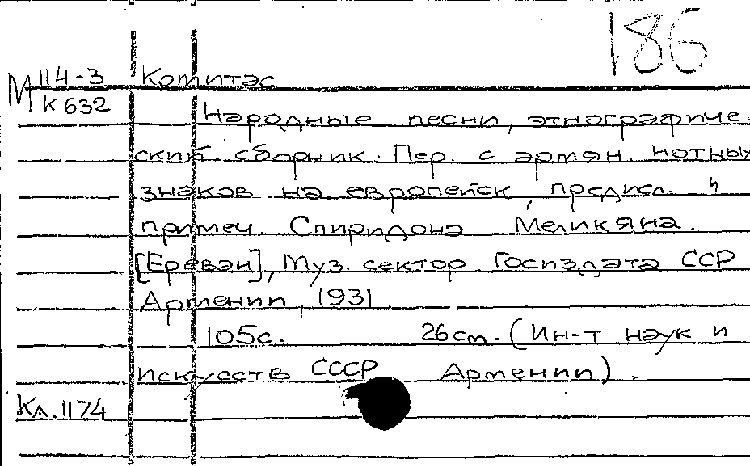 186
М 114-3 Комитас
К 632
Народные песни, этнографиче-
ский сборник. Пер. с армян. нотных
знаков на европейск, предисл. и
примеч. Спиридона Меликяна.
[Ереван], Муз. сектор Госиздата ССР
Армении, 1931
105с. 26см. (Ин-т наук и
искусств СССР Армении).
Кл. 1174